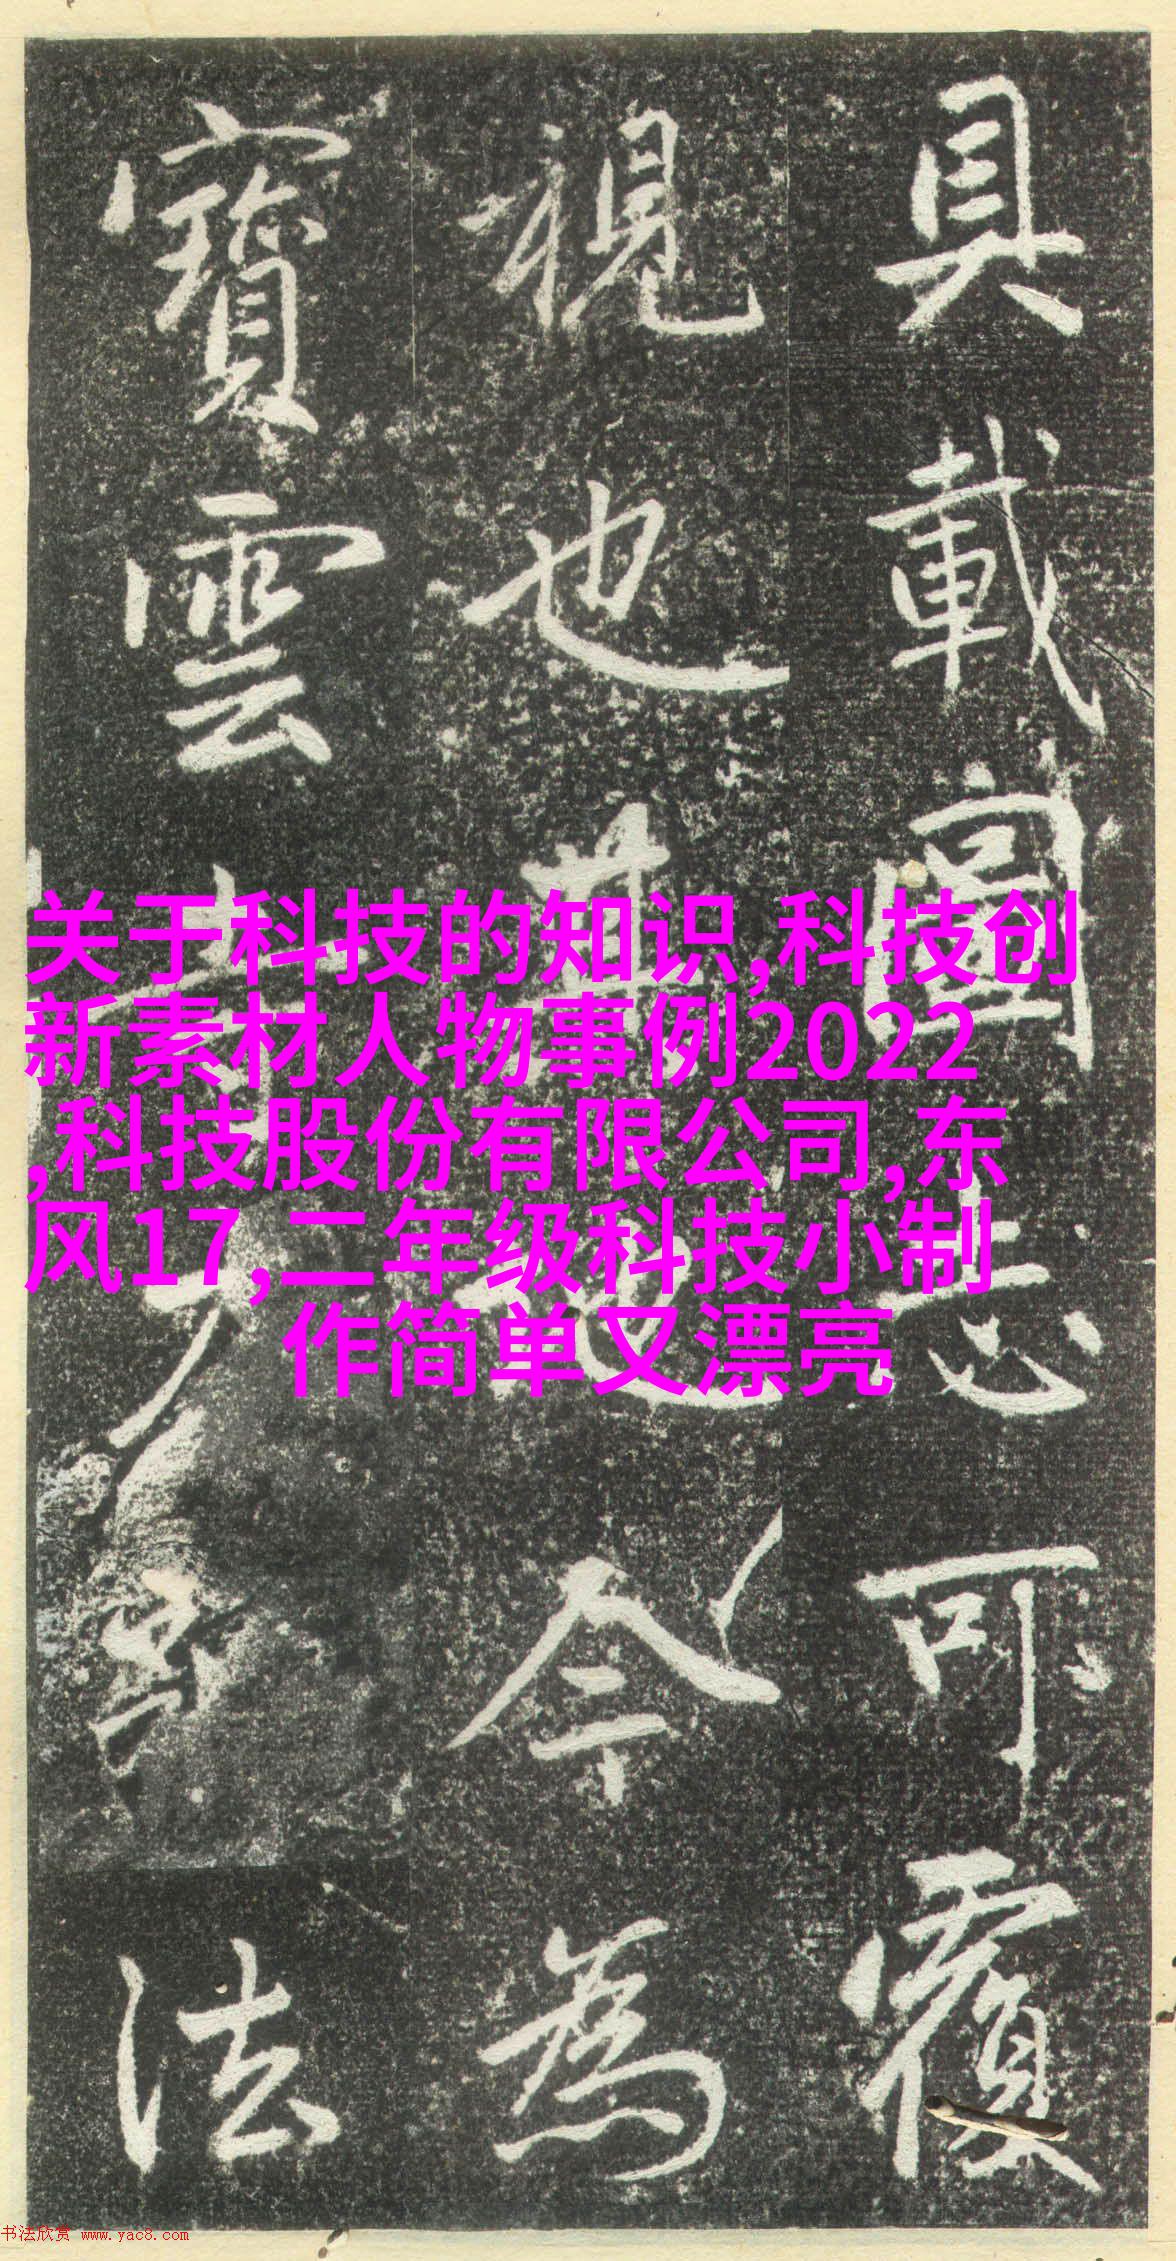 关于科技的知识,科技创
新素材人物事例2022
,科技股份有限公司,东
风17,二年级科技小制
作简单又漂亮
具載圖志可覆
視也也今為
寶雲法
书法欣赏 www.yac8.com